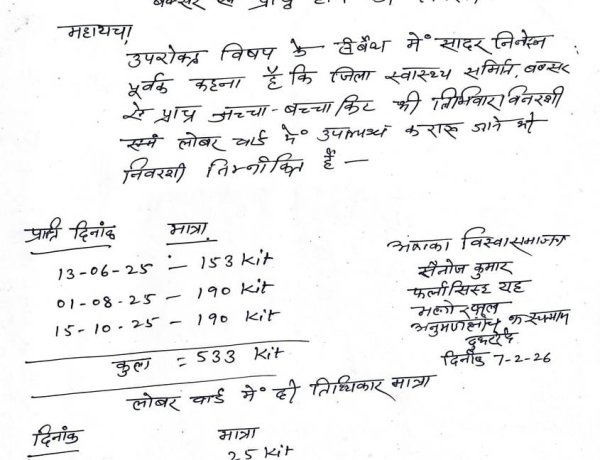 महाशय,
उपरोक्त विषय के संबंध में सादर निवेदन
पूर्वक कहना है कि जिला स्वास्थ्य समिति, बक्सर
से प्राप्त जच्चा-बच्चा किट की तिथिवार विवरणी
एवं लेबर वार्ड में उपलब्ध कराए जाने की
विवरणी निम्नांकित है —
प्राप्ति दिनांक मात्रा
13-06-25 :- 153 Kit
01-08-25 - 190 Kit
15-10-25 - 190 Kit
कुल = 533 Kit
विश्वासभाजन
मनोज कुमार
अनुमण्डलीय
दिनांक 7-2-26
लेबर वार्ड में दी तिथिवार मात्रा
दिनांक मात्रा
25 Kit